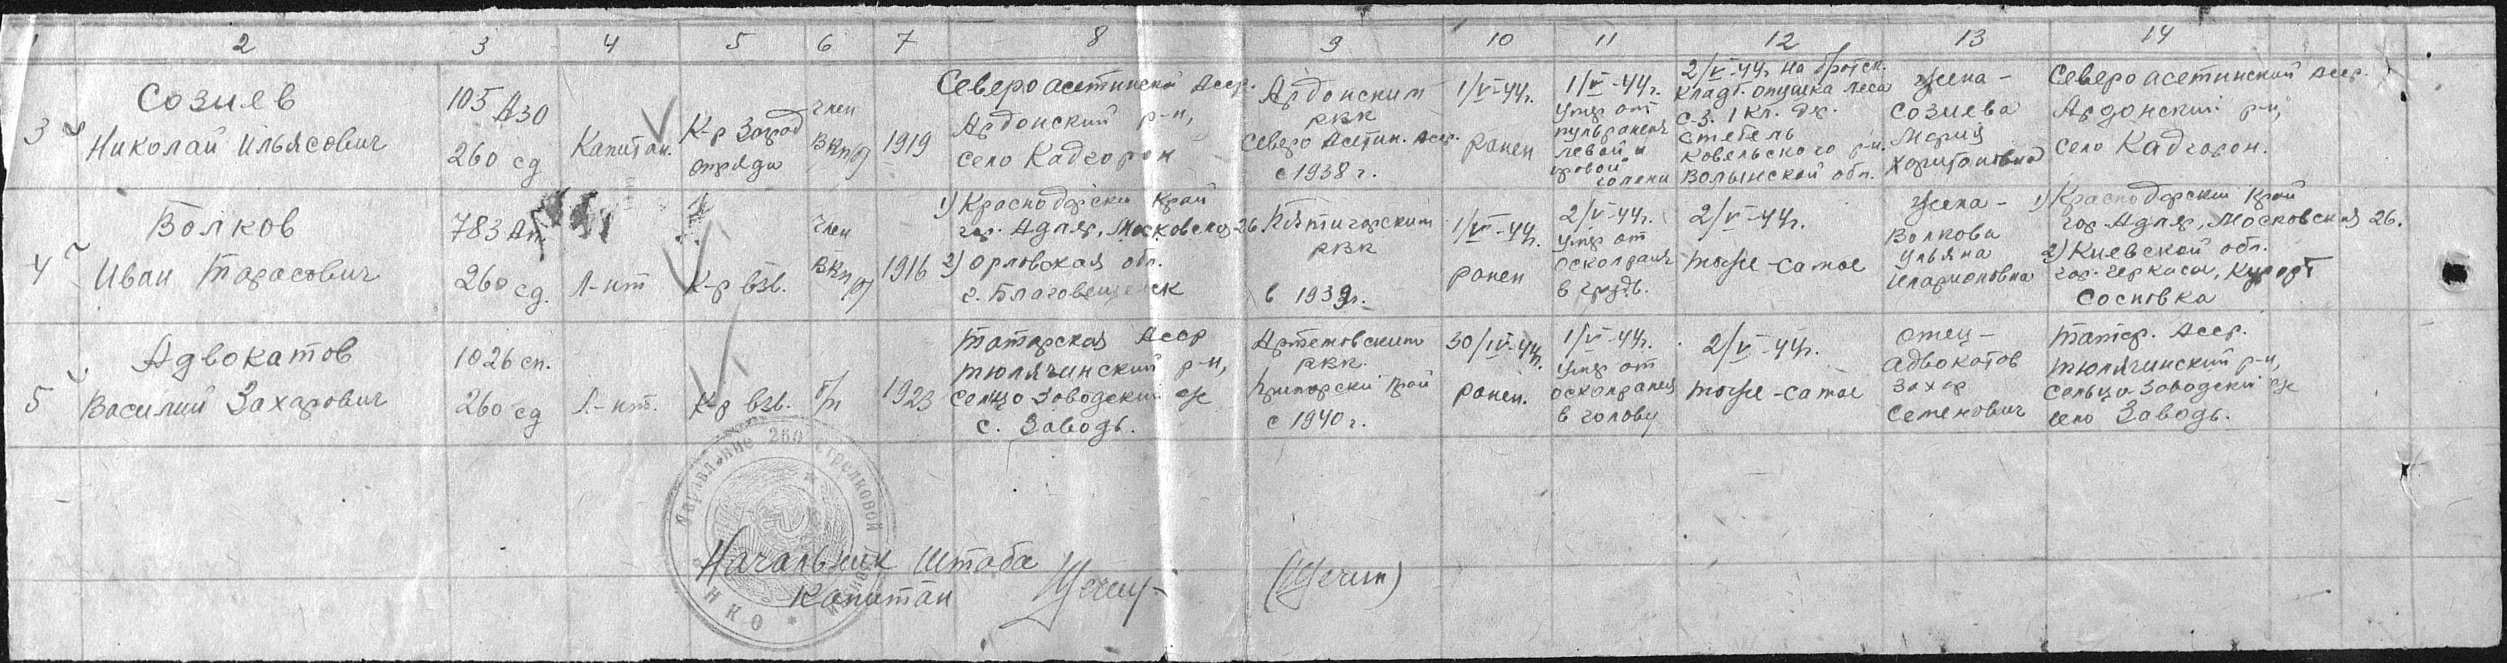 1 2 3 4 5 6 7 8 9 10 11 12 13 14
3
Созиев
Николай Ильясович
105 АЗО
260 сд
Капитан.
К-р Заград
отряда
член
ВКП(б)
1919
Североасетинской Асср.
Ардонский р-н,
село Кадгорон
Ардонским
РВК
Северо Асетин. Асср.
с 1938 г.
1/V-44г.
ранен
1/V-44г.
умер от
пульранения
левой и
правой
голени
2/V-44г. на братск.
кладб. опушка леса
с-з. 1 кл. др.
Стебель
Ковельского р-н.
Волынской обл.
жена -
Созиева
Мария
Харитоновна
Североасетинский Асср.
Ардонский р-н,
село Кадгорон.
4
Волков
Иван Тарасович
783 Ап.
260 сд.
Л-нт
К-р взв.
член
ВКП(б)
1916
1) Краснодарский Край
гор. Адлер, Московская 26
2) Орловская обл.
г. Благовещенск
Пятигорским
РВК
в 1939г.
1/V-44г.
ранен
2/V-44г.
умер от
осколранен
в грудь.
2/V-44г.
тоже-самое
жена -
Волкова
Ульяна
Иларионовна
1) Краснодарский Край
гор. Адлер, Московская 26.
2) Киевской обл.
гор. Черкасы, Курорт
Сосновка
5
Адвокатов
Василий Захарович
1026 сп.
260 сд
Л-нт.
К-р взв.
б/п
1923
Татарская Асср
Тюлячинский р-н,
Сельцо Заводский с/с
с. Заводь.
Артемовским
РВК.
Приморский Край
с 1940 г.
30/IV-44г.
ранен.
1/V-44г.
умер от
осколранен
в голову
2/V-44г.
тоже-самое
отец -
Адвокатов
Захар
Семенович
Татар. Асср.
Тюлячинский р-н,
Сельцо-Заводский с/с
село Заводь.
Управление 260 стрелковой дивизии * НКО *
Начальник Штаба
Капитан
(Щечин)